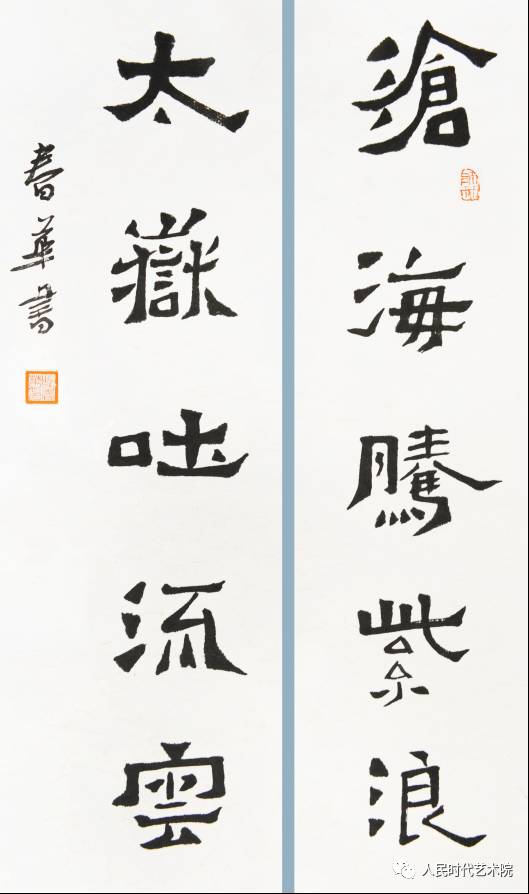 滄海騰紫浪
太嶽吐流雲
春華書
人民时代艺术院